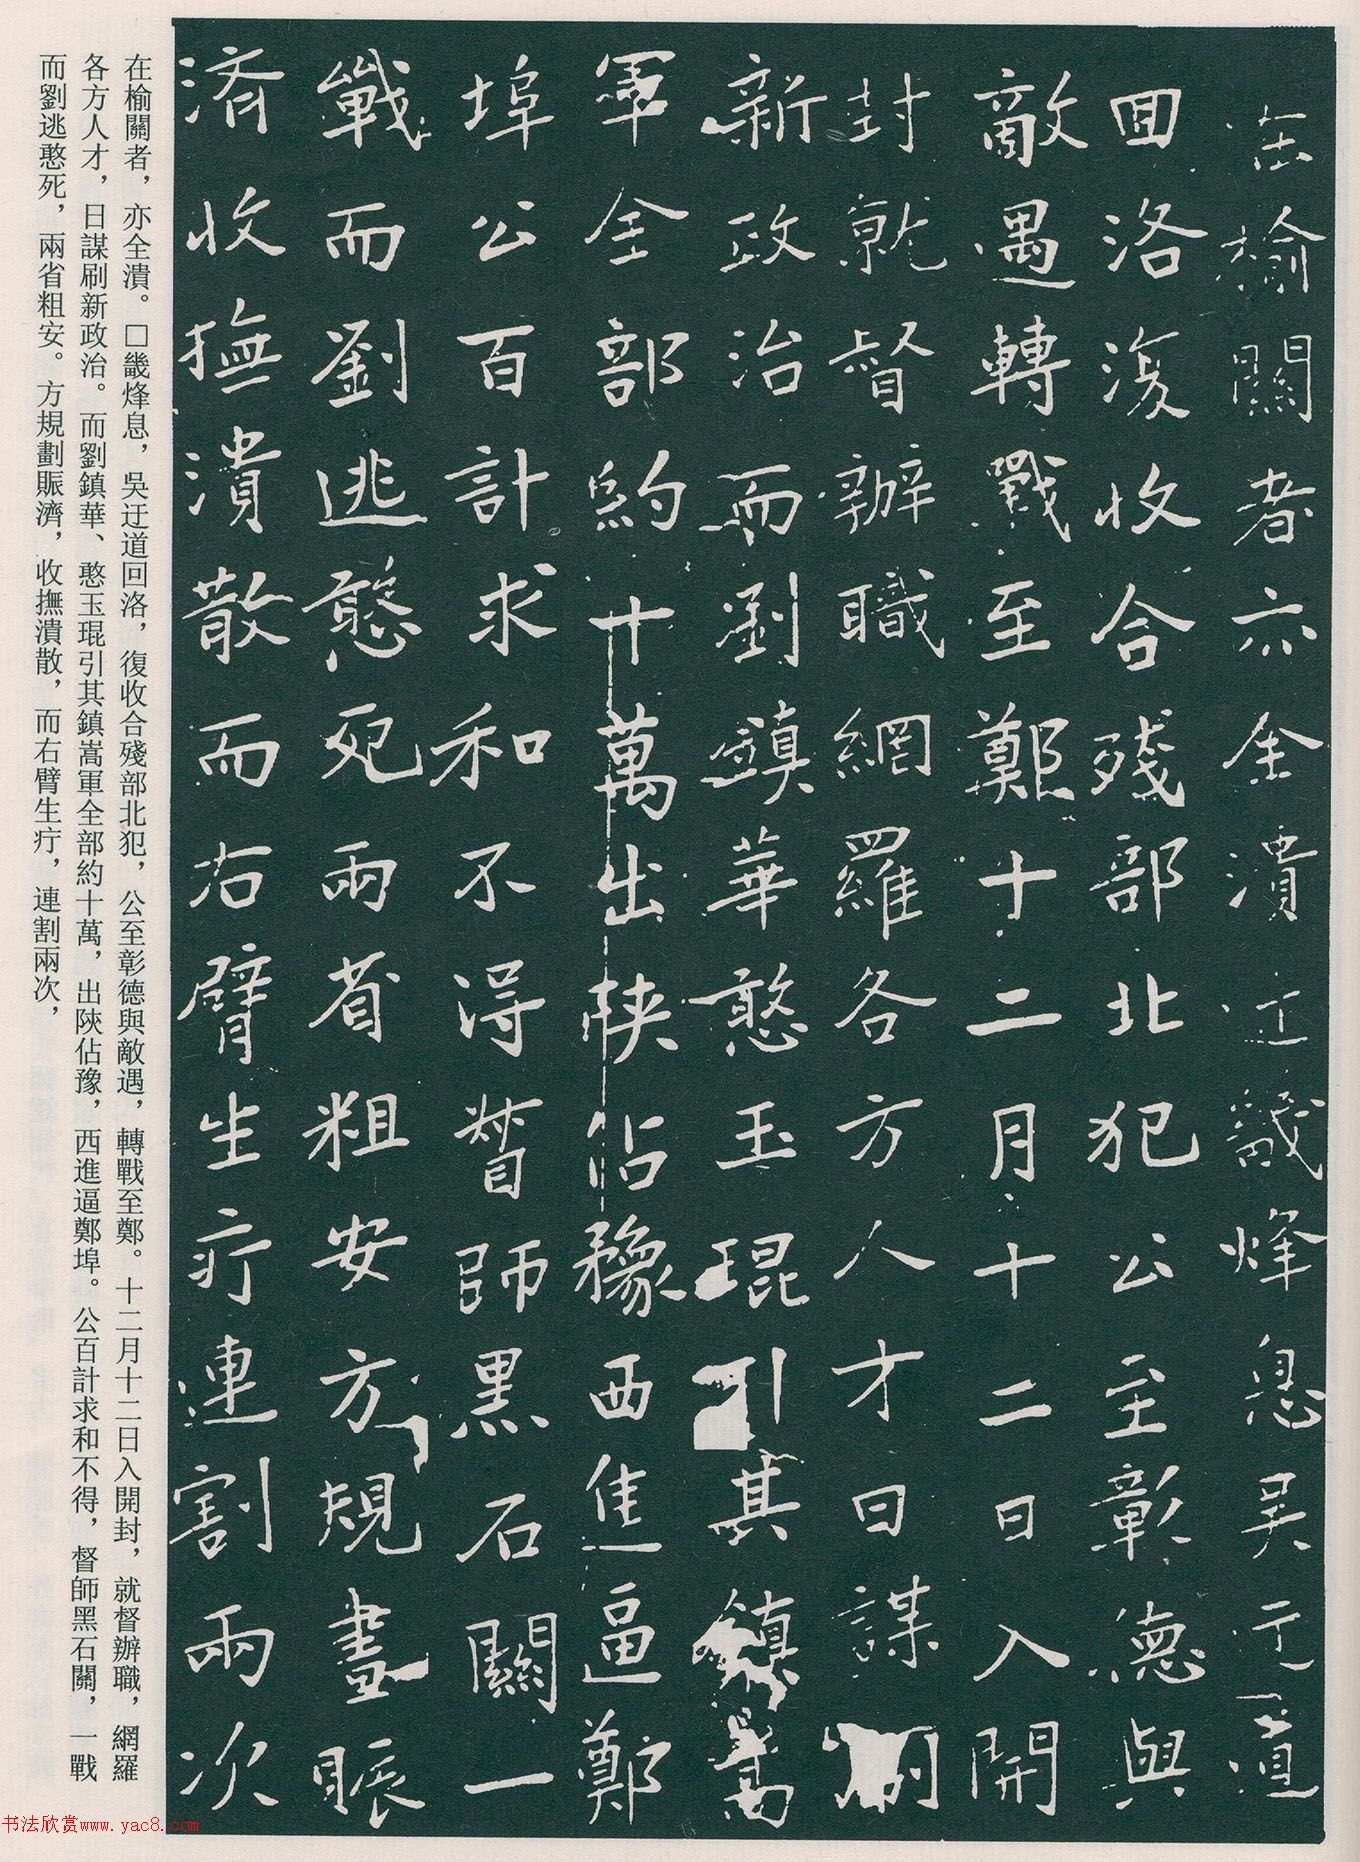 在榆關者亦全潰畿烽息吳迂道
回洛復收合殘部北犯公至彰德與
敵遇轉戰至鄭十二月十二日入開
封就督辦職網羅各方人才日謀刷
新政治而劉鎮華憨玉琨引其鎮嵩
軍全部約十萬出陝佔豫西進逼鄭
埠公百計求和不得督師黑石關一
戰而劉逃憨死兩省粗安方規畫賑
濟收撫潰散而右臂生疔連割兩次
在榆關者，亦全潰。□畿烽息，吳迂道回洛，復收合殘部北犯，公至彰德與敵遇，轉戰至鄭。十二月十二日入開封，就督辦職，網羅
各方人才，日謀刷新政治。而劉鎮華、憨玉琨引其鎮嵩軍全部約十萬，出陝佔豫，西進逼鄭埠。公百計求和不得，督師黑石關，一戰
而劉逃憨死，兩省粗安。方規劃賑濟，收撫潰散，而右臂生疔，連割兩次，
书法欣赏www.yac8.com